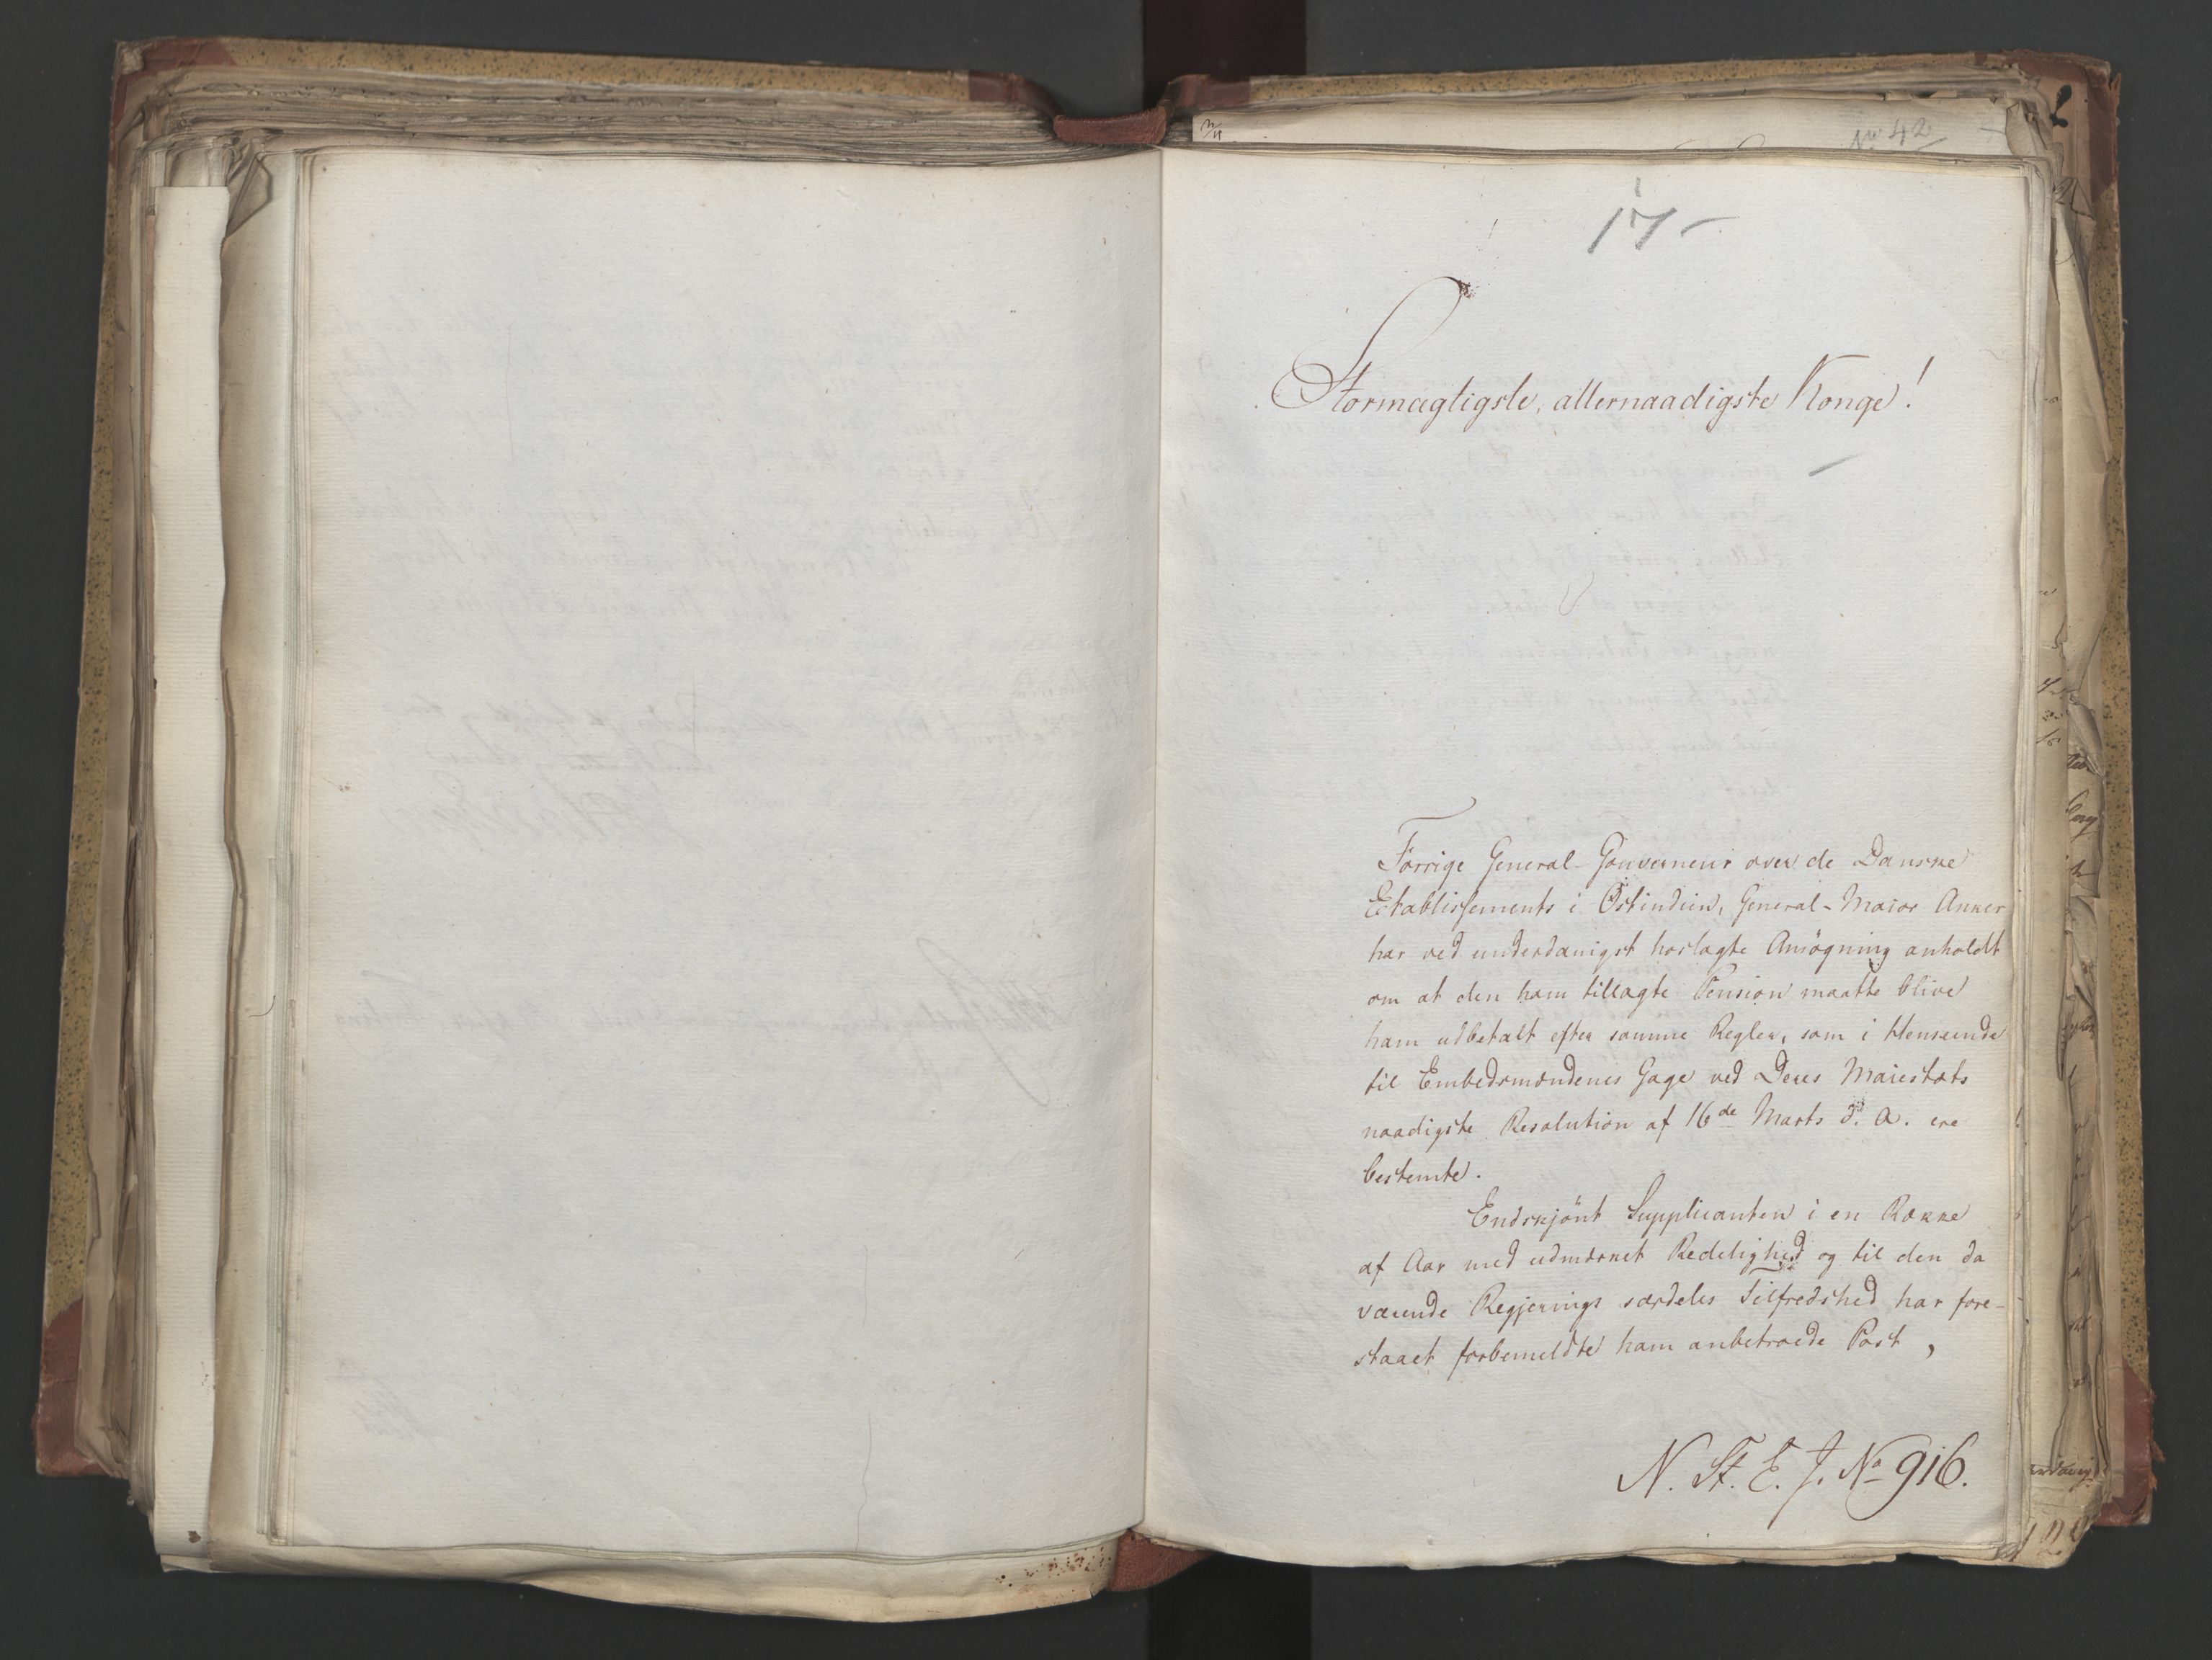 No 42
17
Stormægtigste, allernaadigste Konge!
Forrige General-Gouverneur over de Danske
Etablissements i Ostindien, General-Maior Anker
har ved underdanigst hoslagte Ansøgning anholdt
om at den ham tillagte Pension maatte blive
ham udbetalt efter samme Regler, som i Henseende
til Embedsmændenes Gage ved Deres Maiestæts
naadigste Resolution af 16de Marts d. A. ere
bestemte.
Endskjönt Supplicanten i en Række
af Aar med udmærket Redelighed og til den da
værende Regjerings særdeles Tilfredshed har fore-
staaet forbemeldte ham anbetroede Post,
N. St. E. J. No 916.